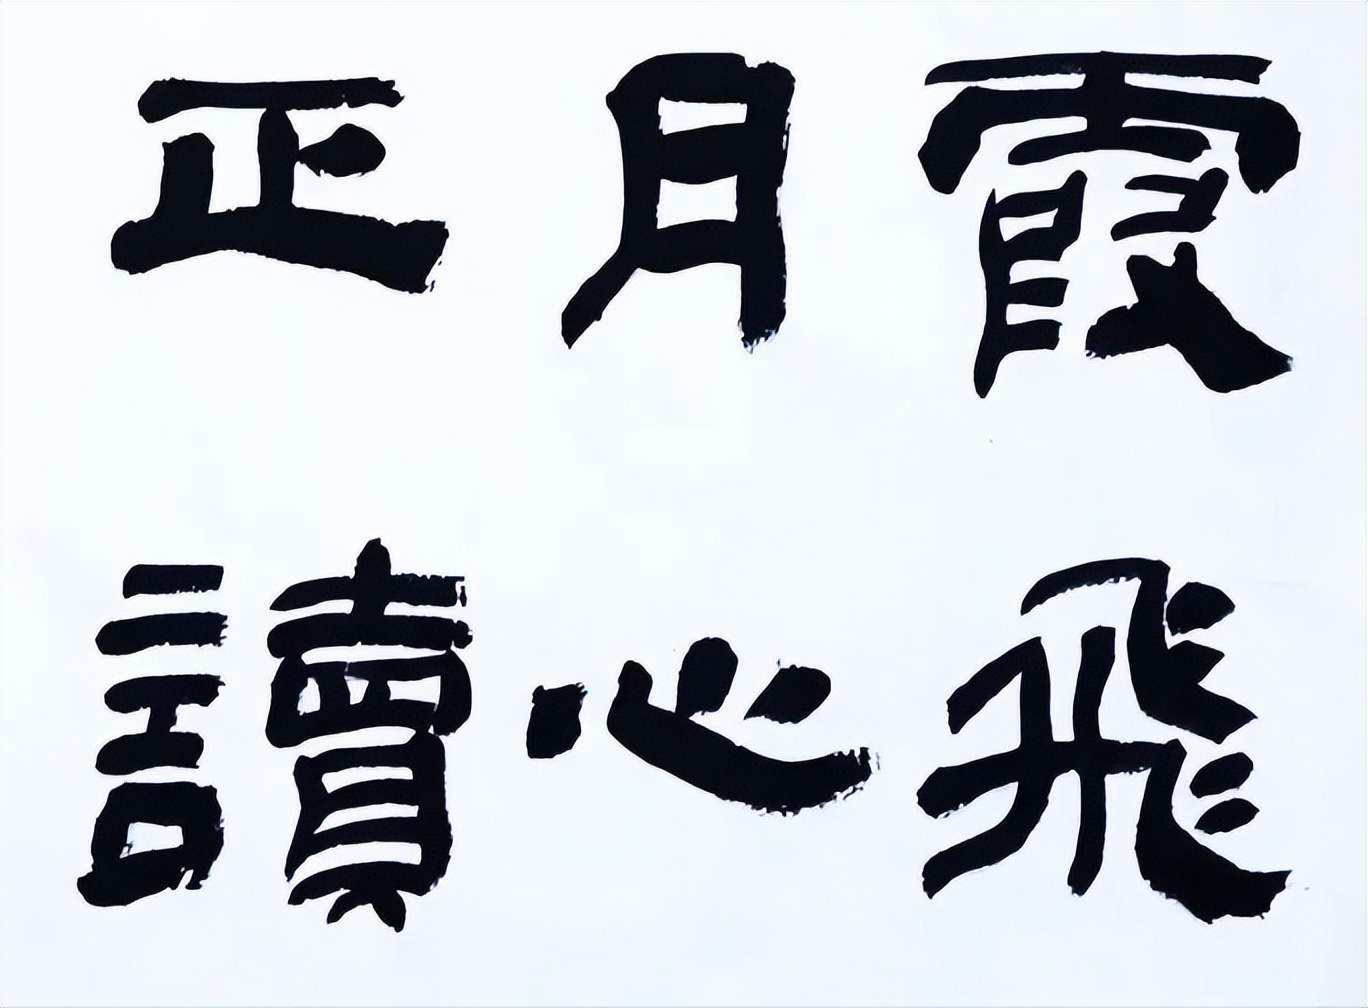 霞飛
月心
正讀